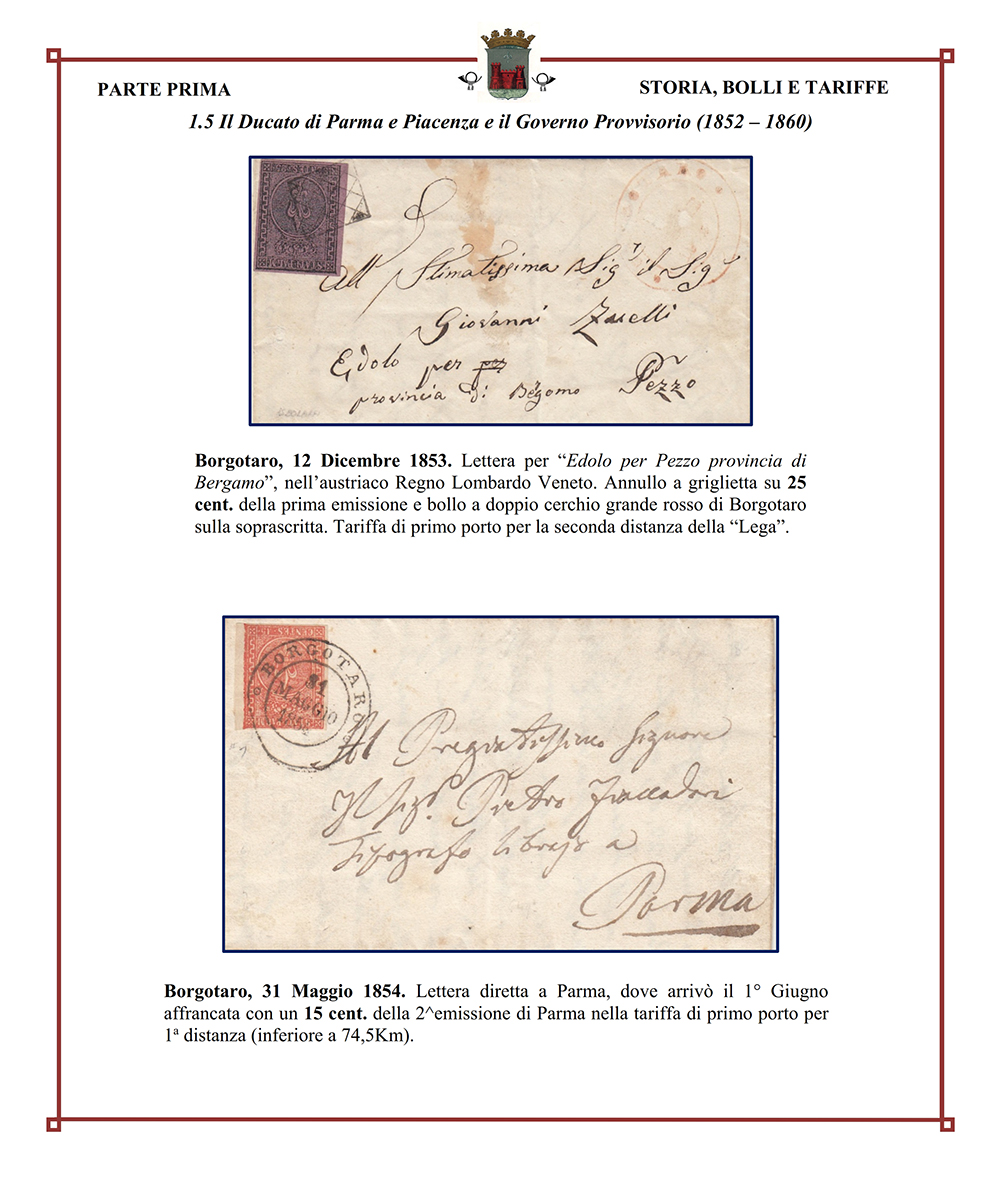 PARTE PRIMA
STORIA, BOLLI E TARIFFE
1.5 Il Ducato di Parma e Piacenza e il Governo Provvisorio (1852 – 1860)
All Stimatissima Sigr il Sigr
Giovanni Zuelli
Edolo per per Pezzo
provincia di Bergomo
Borgotaro, 12 Dicembre 1853. Lettera per “Edolo per Pezzo provincia di
Bergamo”, nell’austriaco Regno Lombardo Veneto. Annullo a griglietta su 25
cent. della prima emissione e bollo a doppio cerchio grande rosso di Borgotaro
sulla soprascritta. Tariffa di primo porto per la seconda distanza della “Lega”.
CENTES 15
BORGOTARO
31
MAGGIO
185
Al Pregiatissimo Signore
Il Sigr Pietro Fiaccadori
Tipografo Librajo a
Parma
Borgotaro, 31 Maggio 1854. Lettera diretta a Parma, dove arrivò il 1° Giugno
affrancata con un 15 cent. della 2^emissione di Parma nella tariffa di primo porto per
1ª distanza (inferiore a 74,5Km).